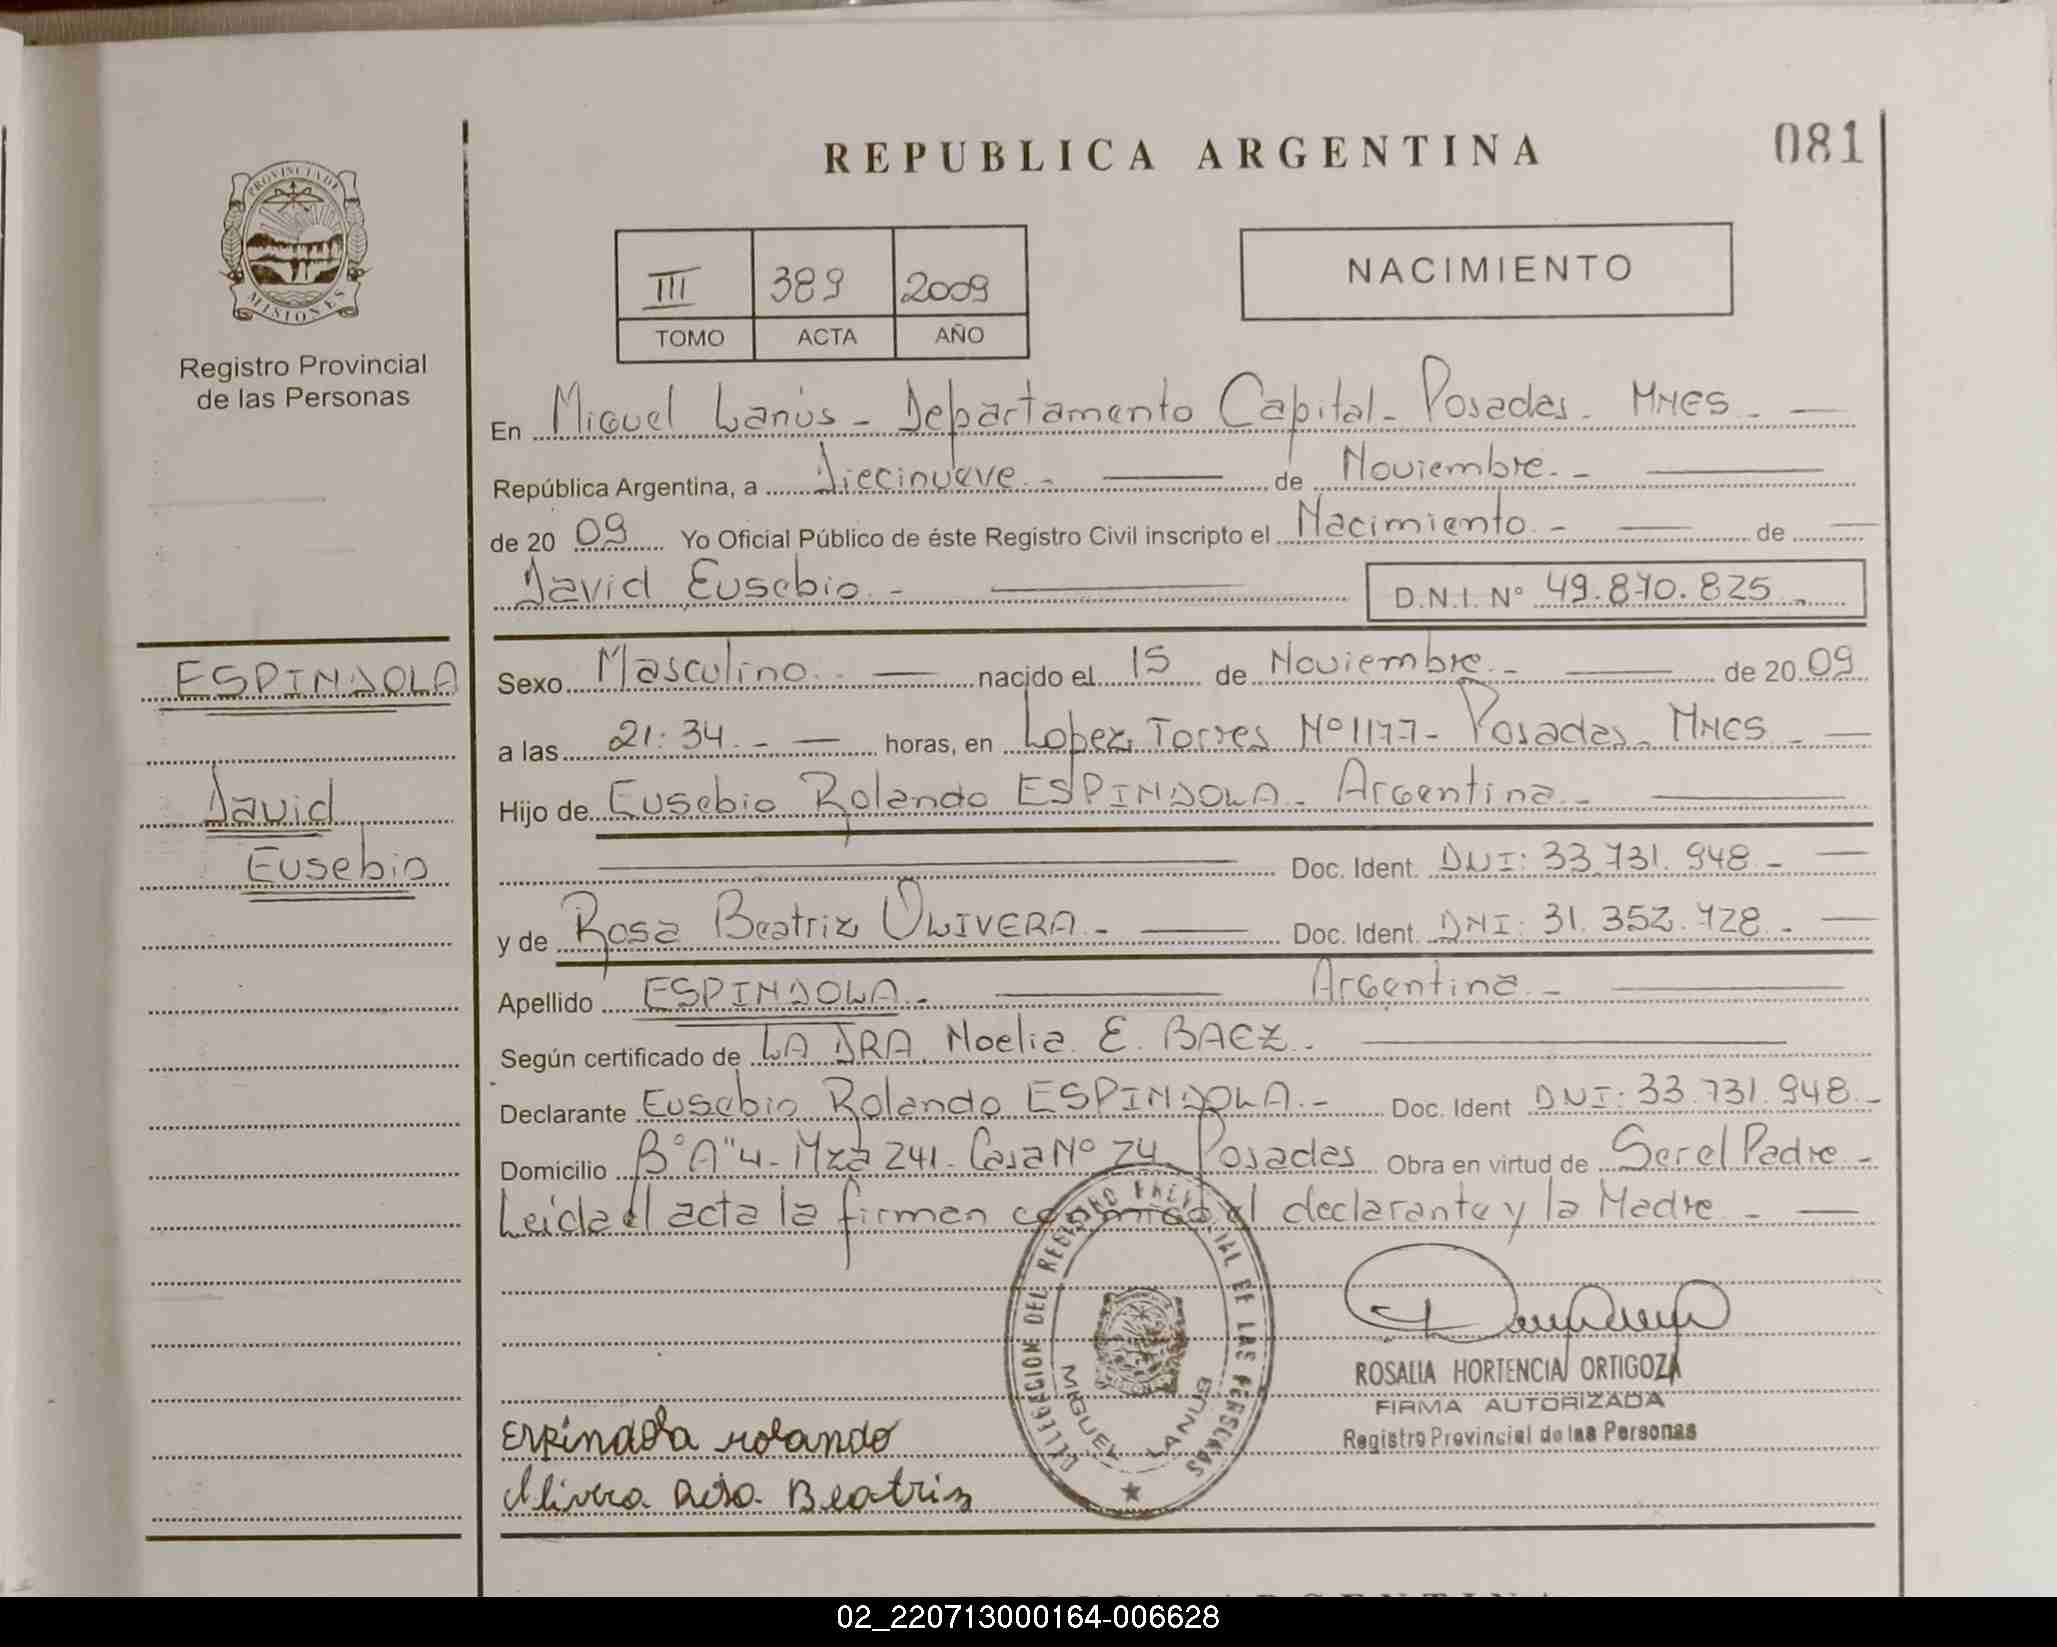 REPUBLICA ARGENTINA
081
PROVINCIA DE
MISIONES
Registro Provincial
de las Personas
III 389 2009
TOMO ACTA AÑO
NACIMIENTO
En Miguel Lanús - Departamento Capital - Posadas - Mnes - —
República Argentina, a Diecinueve. - — de Noviembre. - —
de 20 09 Yo Oficial Público de éste Registro Civil inscripto el Nacimiento - — de —
David Eusebio. - —
D.N.I. Nº 49.870.825 -
ESPINDOLA
David
Eusebio
Sexo Masculino. - — nacido el 15 de Noviembre. - — de 20 09
a las 21:34. - — horas, en Lopez Torres Nº 1177 - Posadas - Mnes - —
Hijo de Eusebio Rolando ESPINDOLA - Argentina - —
— Doc. Ident. DNI: 33.731.948 - —
y de Rosa Beatriz OLIVERA - — Doc. Ident. DNI: 31.352.728 - —
Apellido ESPINDOLA - — Argentina - —
Según certificado de LA DRA Noelia E. BAEZ. —
Declarante Eusebio Rolando ESPINDOLA. - Doc. Ident DNI: 33.731.948. -
Domicilio Bº "A" 4 - Mza 241 - Casa Nº 24 Posadas Obra en virtud de Ser el Padre -
Leída el acta la firman conmigo el declarante y la Madre - —
DELEGACION DEL REGISTRO PROVINCIAL DE LAS PERSONAS
MIGUEL LANUS
ROSALIA HORTENCIA ORTIGOZA
FIRMA AUTORIZADA
Registro Provincial de las Personas
Espindola rolando
Olivera Rosa Beatriz
02_220713000164-006628